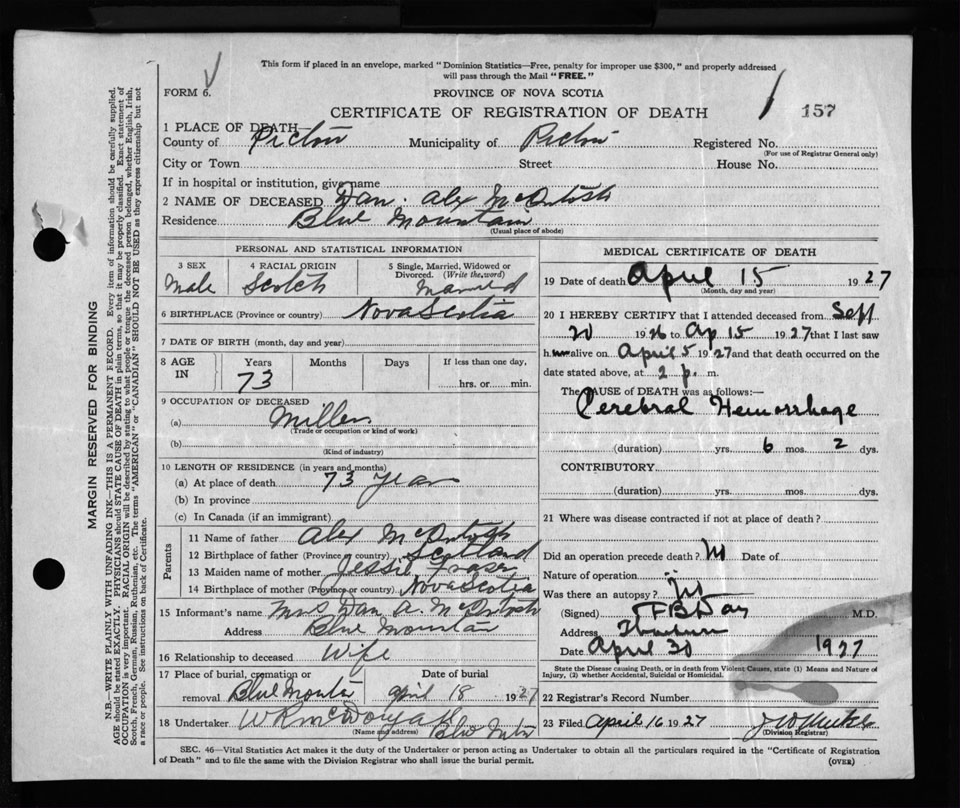 This form if placed in an envelope, marked "Dominion Statistics—Free, penalty for improper use $300," and properly addressed
will pass through the Mail "FREE."
FORM 6.
PROVINCE OF NOVA SCOTIA
CERTIFICATE OF REGISTRATION OF DEATH
157
1 PLACE OF DEATH—
County of Pictou Municipality of Pictou Registered No.
(For use of Registrar General only)
City or Town Street House No.
If in hospital or institution, give name
2 NAME OF DECEASED Dan. Alex McIntosh
Residence Blue Mountain
(Usual place of abode)
PERSONAL AND STATISTICAL INFORMATION
3 SEX 4 RACIAL ORIGIN 5 Single, Married, Widowed or
Divorced. (Write the word)
Male Scotch Married
6 BIRTHPLACE (Province or country) Nova Scotia
7 DATE OF BIRTH (month, day and year)
8 AGE IN Years Months Days If less than one day,
73 hrs. or min.
9 OCCUPATION OF DECEASED
(a) Miller
(Trade or occupation or kind of work)
(b)
(Kind of industry)
10 LENGTH OF RESIDENCE (in years and months)
(a) At place of death 73 years
(b) In province
(c) In Canada (if an immigrant)
Parents
11 Name of father Alex McIntosh
12 Birthplace of father (Province or country) Scotland
13 Maiden name of mother Jessie Fraser
14 Birthplace of mother (Province or country) Nova Scotia
15 Informant's name Mrs Dan A. McIntosh
Address Blue Mountain
16 Relationship to deceased Wife
17 Place of burial, cremation or Date of burial
removal Blue Mountain April 18 1927
18 Undertaker
(Name and address)
MEDICAL CERTIFICATE OF DEATH
19 Date of death April 15 1927
(Month, day and year)
20 I HEREBY CERTIFY that I attended deceased from Sept
20 1926 to Ap 15 1927 that I last saw
h alive on April 5 1927 and that death occurred on the
date stated above, at 2 p. m.
The CAUSE of DEATH was as follows:
Cerebral Hemorrhage
(duration) yrs. 6 mos. 2 dys.
CONTRIBUTORY
(duration) yrs. mos. dys.
21 Where was disease contracted if not at place of death?
Did an operation precede death? No Date of
Nature of operation
Was there an autopsy? No
(Signed) F B Day M.D.
Address Thorburn
Date April 30 1927
State the Disease causing Death, or in death from Violent Causes, state (1) Means and Nature of
Injury, (2) whether Accidental, Suicidal or Homicidal.
22 Registrar's Record Number
23 Filed April 16 1927
(Division Registrar)
SEC. 46—Vital Statistics Act makes it the duty of the Undertaker or person acting as Undertaker to obtain all the particulars required in the "Certificate of Registration
of Death" and to file the same with the Division Registrar who shall issue the burial permit.
(OVER)
MARGIN RESERVED FOR BINDING
N.B.—WRITE PLAINLY WITH UNFADING INK—THIS IS A PERMANENT RECORD. Every item of information should be carefully supplied.
AGE should be stated EXACTLY. PHYSICIANS should STATE CAUSE OF DEATH in plain terms, so that it may be properly classified. Exact statement of
OCCUPATION is very important. RACIAL ORIGIN will be described by stating to what people or tongue the deceased person belonged, whether English, Irish,
Scotch, French, German, Russian, Ruthenian, etc. The terms "AMERICAN" or "CANADIAN" SHOULD NOT BE USED as they express citizenship but not
a race or people. See instructions on back of Certificate.